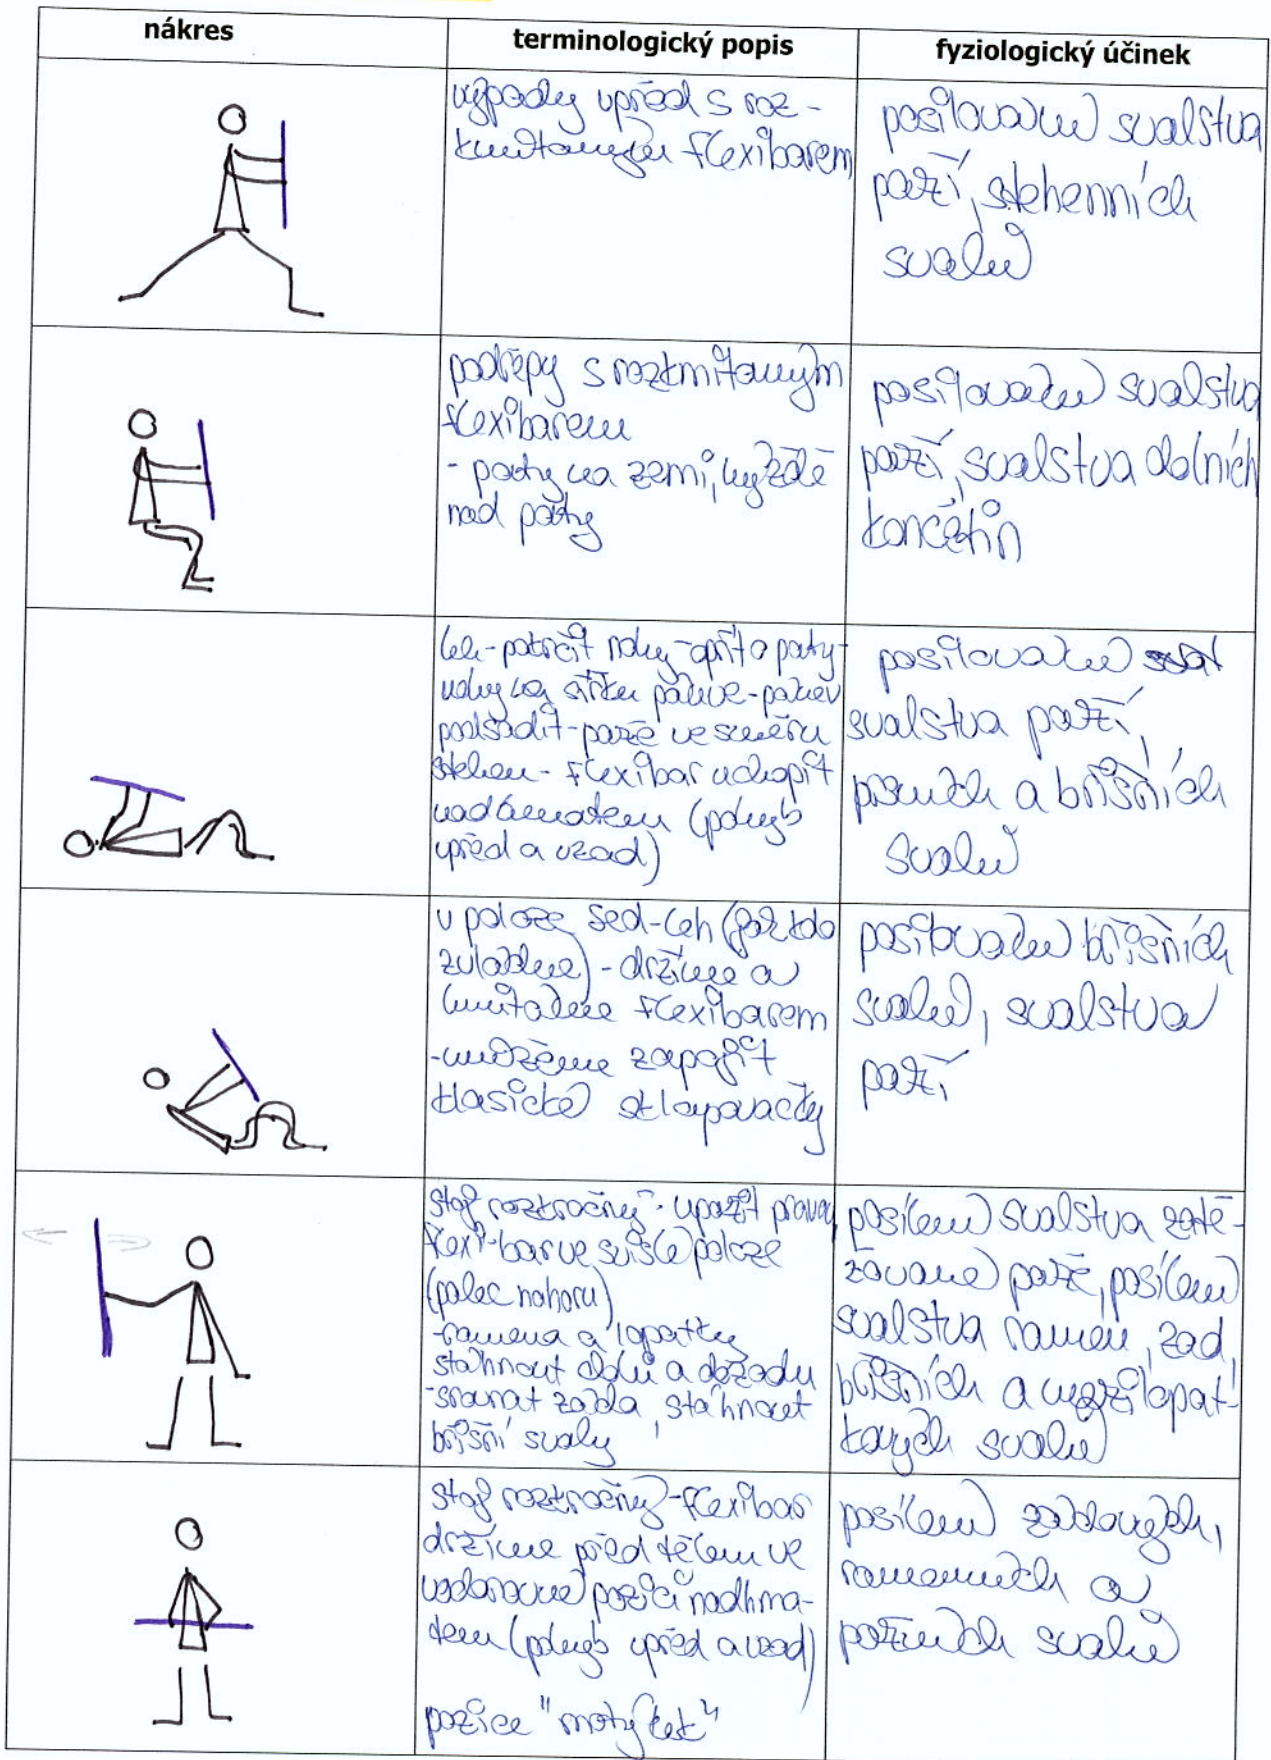 nákres
terminologický popis
fyziologický účinek
výpady vpřed s roz-
kmitaným flexibarem
posilování svalstva
paží, stehenních
svalů
podřepy s rozkmitaným
flexibarem
- paty na zemi, hýždě
nad paty
posilování svalstva
paží, svalstva dolních
končetin
leh - pokrčit nohy - opřít o paty -
nohy na šířku pánve - pánev
podsadit - paže ve směru
stehen - flexibar uchopit
nadhmatem (pohyb
vpřed a vzad)
posilování
svalstva paží,
prsních a břišních
svalů
v poloze sed-leh (
zvládne) - držíme a
kmitáme flexibarem
- můžeme zapojit
klasické sklapovačky
posilování břišních
svalů, svalstva
paží
stoj rozkročný - upažit pravou
flexi-bar ve svislé poloze
(palec nahoru)
- ramena a lopatky
stáhnout dolů a dozadu
- srovnat záda, stáhnout
břišní svaly
posílení svalstva zatě-
žované paže, posílení
svalstva ramen, zad,
břišních a mezilopat-
kových svalů
stoj rozkročný - flexibar
držíme před tělem ve
vodorovné pozici nadhma-
tem (pohyb vpřed a vzad)
pozice "motýlek"
posílení zádových,
ramenních a
pažních svalů